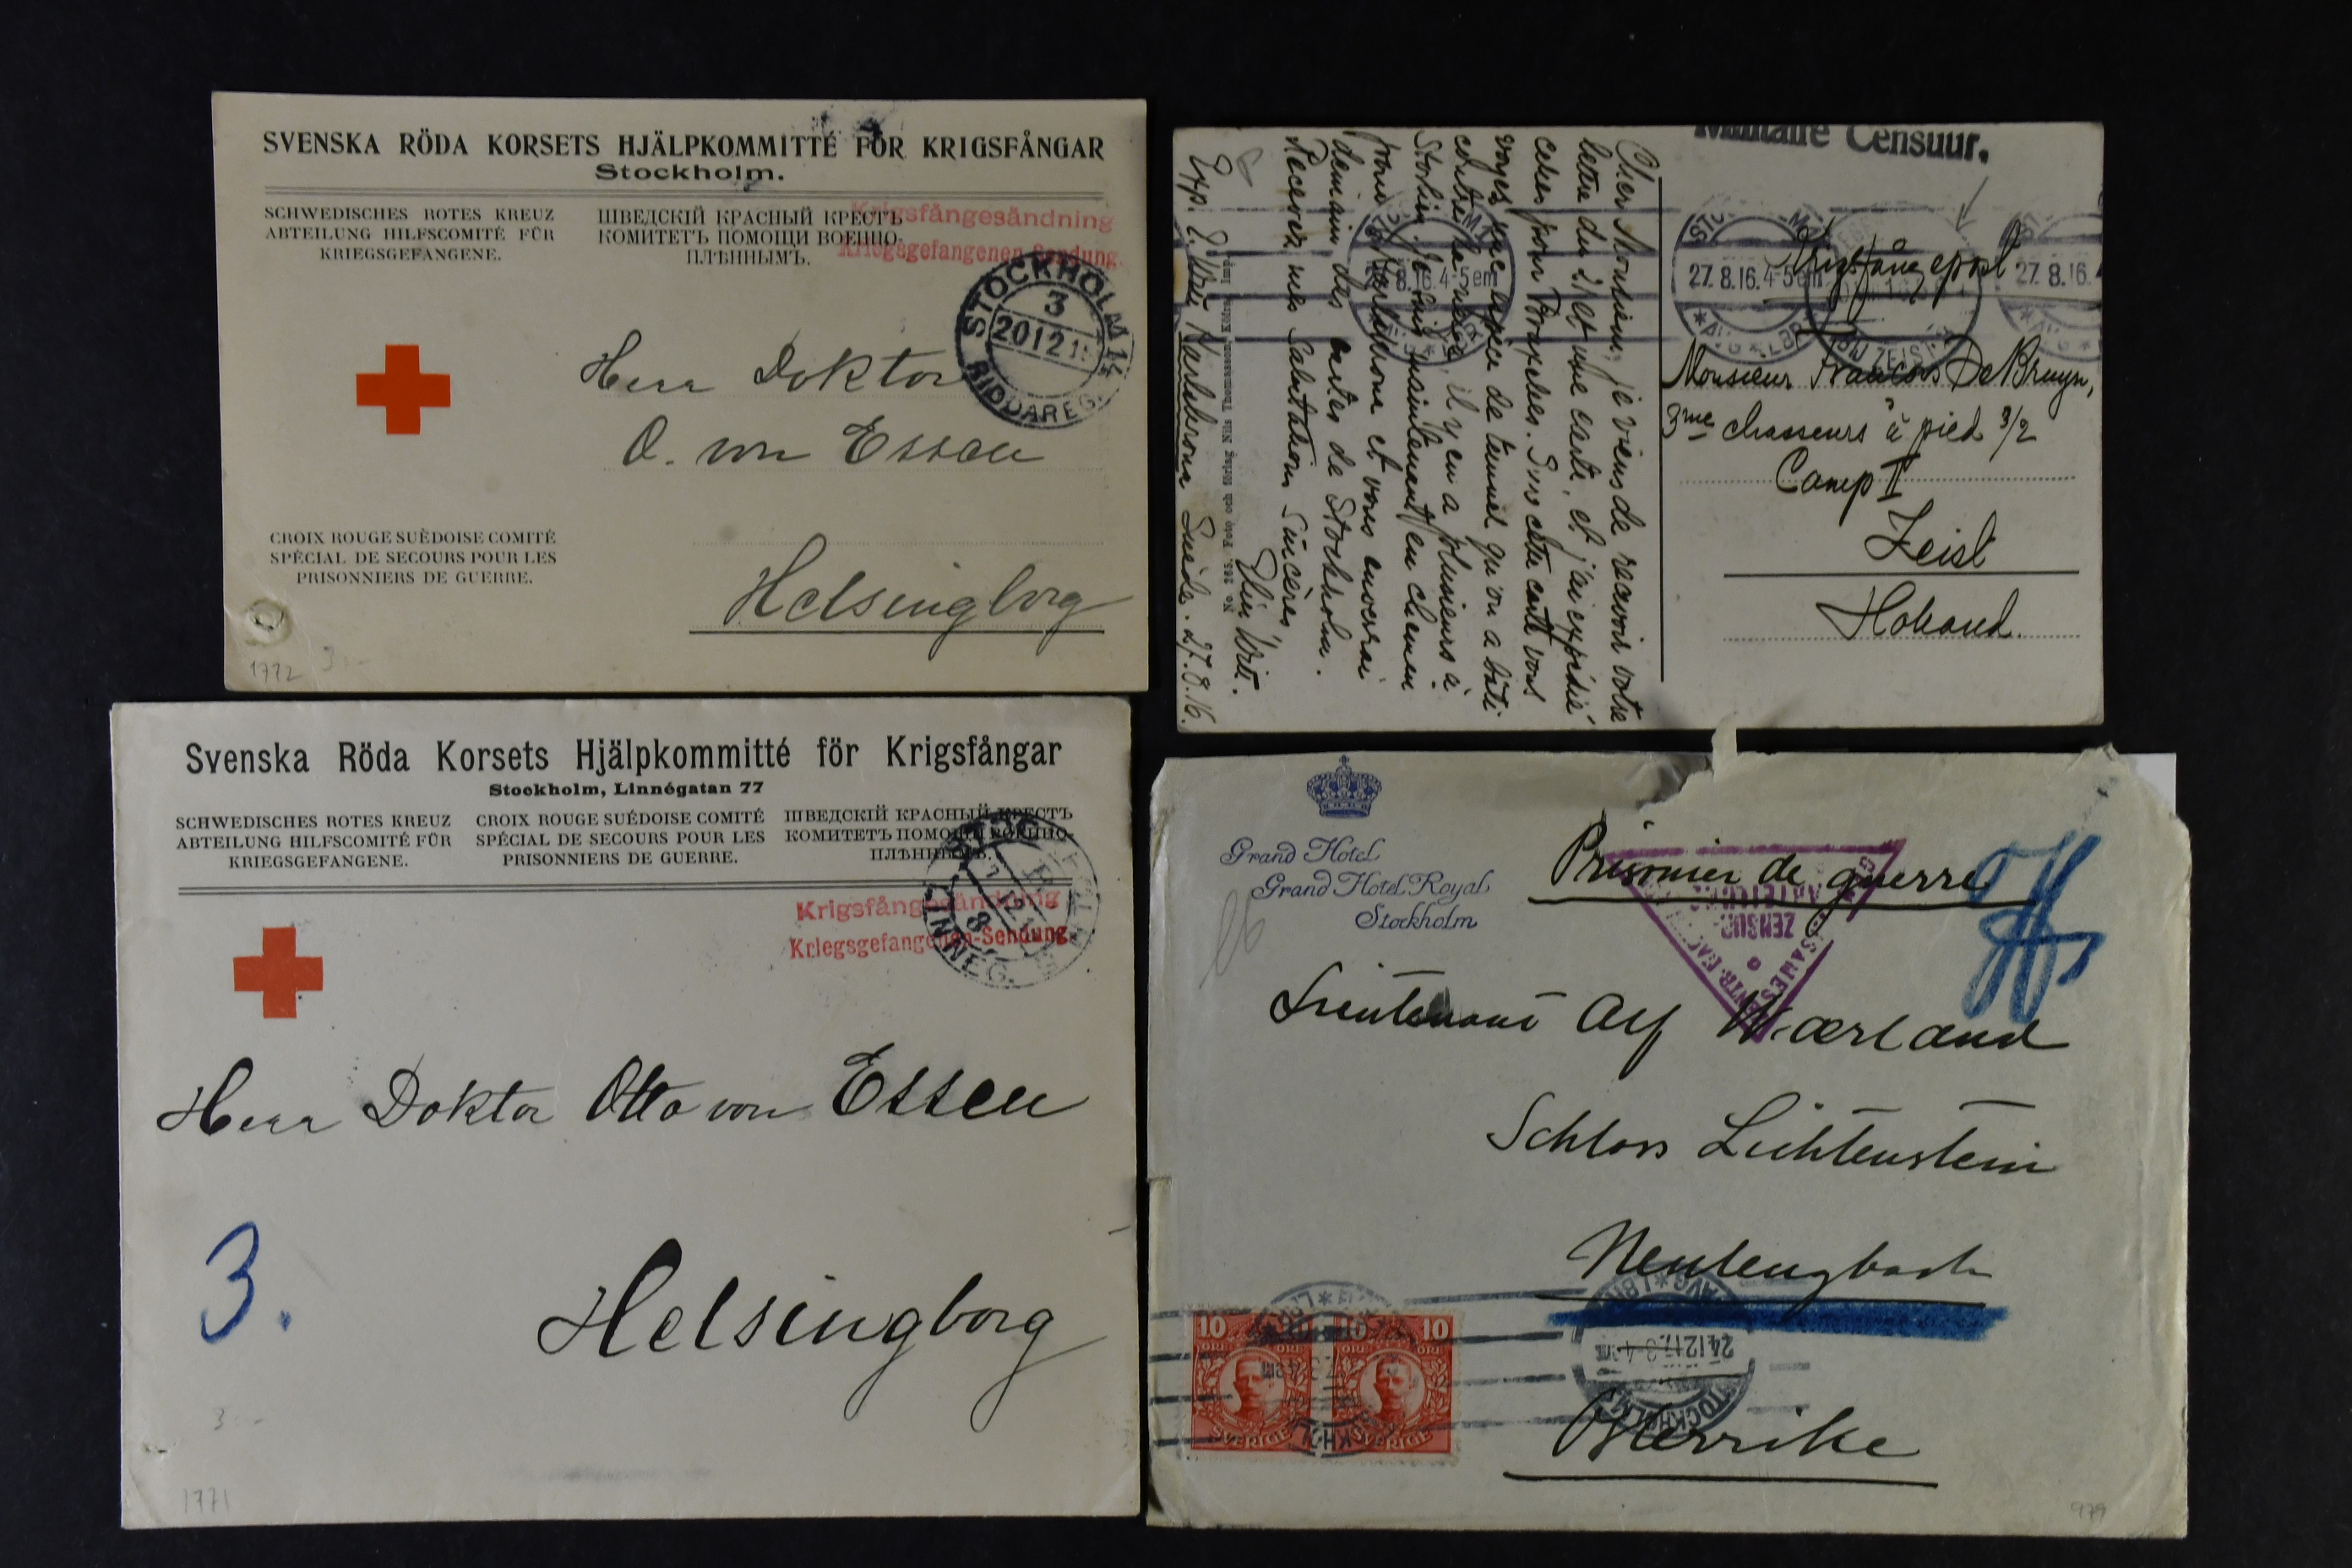 SVENSKA RÖDA KORSETS HJÄLPKOMMITTÉ FÖR KRIGSFÅNGAR
Stockholm.
SCHWEDISCHES ROTES KREUZ
ABTEILUNG HILFSCOMITÉ FÜR
KRIEGSGEFANGENE.
ШВЕДСКІЙ КРАСНЫЙ КРЕСТЪ
КОМИТЕТЪ ПОМОЩИ ВОЕННО-
ПЛѢННЫМЪ.
Krigsfångesändning
Kriegsgefangenen-Sendung.
STOCKHOLM 14
3
20 12 1
RIDDAREG.
Herr Doktor
O. von Essen
Helsingborg
CROIX ROUGE SUÈDOISE COMITÉ
SPÉCIAL DE SECOURS POUR LES
PRISONNIERS DE GUERRE.
1772
3.-
Militaire Censuur.
27.8.16. 4-5 em
27.8.16.
Krigsfångepost.
Monsieur Francois De Bruyn,
3me chasseurs à pied 3/2
Camp II
Zeist
Holland.
Cher Monsieur, je viens de recevoir votre
lettre du 21 et une carte, et j'ai expédié
celles pour Bruxelles. Sur cette carte vous
voyez une espèce de tunnel qu'on a bâti
contre la neige, il y en a plusieurs à
Storlien. Je suis maintenant en chemin
pour Karlskrona et vous enverrai
demain des cartes de Stockholm.
Recevez mes salutations sincères
Elin Witt.
No 265. Foto och förlag Nils Thomasson, Köldre Imp.
Exp. E. Witt Karlskrona Suède. 27.8.16.
Svenska Röda Korsets Hjälpkommitté för Krigsfångar
Stockholm, Linnégatan 77
SCHWEDISCHES ROTES KREUZ
ABTEILUNG HILFSCOMITÉ FÜR
KRIEGSGEFANGENE.
CROIX ROUGE SUÉDOISE COMITÉ
SPÉCIAL DE SECOURS POUR LES
PRISONNIERS DE GUERRE.
ШВЕДСКІЙ КРАСНЫЙ КРЕСТЪ
КОМИТЕТЪ ПОМОЩИ ВОЕННО-
ПЛѢННЫМЪ.
Krigsfångesändning
Kriegsgefangenen-Sendung.
LINNÉG.
Herr Doktor Otto von Essen
3.
Helsingborg
3.-
1771
Grand Hotel
Grand Hotel Royal
Stockholm
Prisonnier de guerre
ZENSUR
Lieutenant Alf Wærland
Schloss Lichtenstein
Neulengbach
24.12.17. 3-4
STOCKHOLM
Österrike
10 10 10
ÖRE ÖRE ÖRE
SVERIGE SVERIGE
979